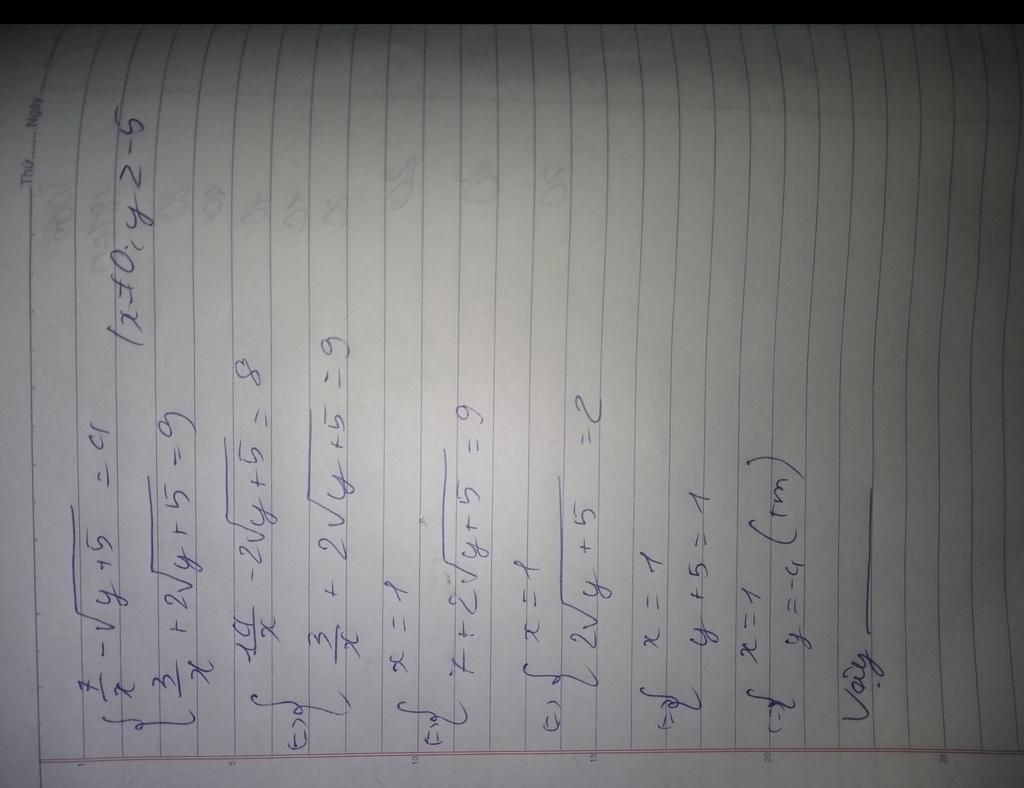 Thứ ........ Ngày ........
{ 7/x - √(y+5) = 4
(x≠0; y≥-5
{ 3/x + 2√(y+5) = 9
{ 14/x - 2√(y+5) = 8
(=) { 3/x + 2√(y+5) = 9
{ x = 1
(=) { 7 + 2√(y+5) = 9
(=) { x = 1
{ 2√(y+5) = 2
(=) { x = 1
{ y + 5 = 1
(=) { x = 1
{ y = -4 (tm)
Vậy
1
5
10
15
20
25